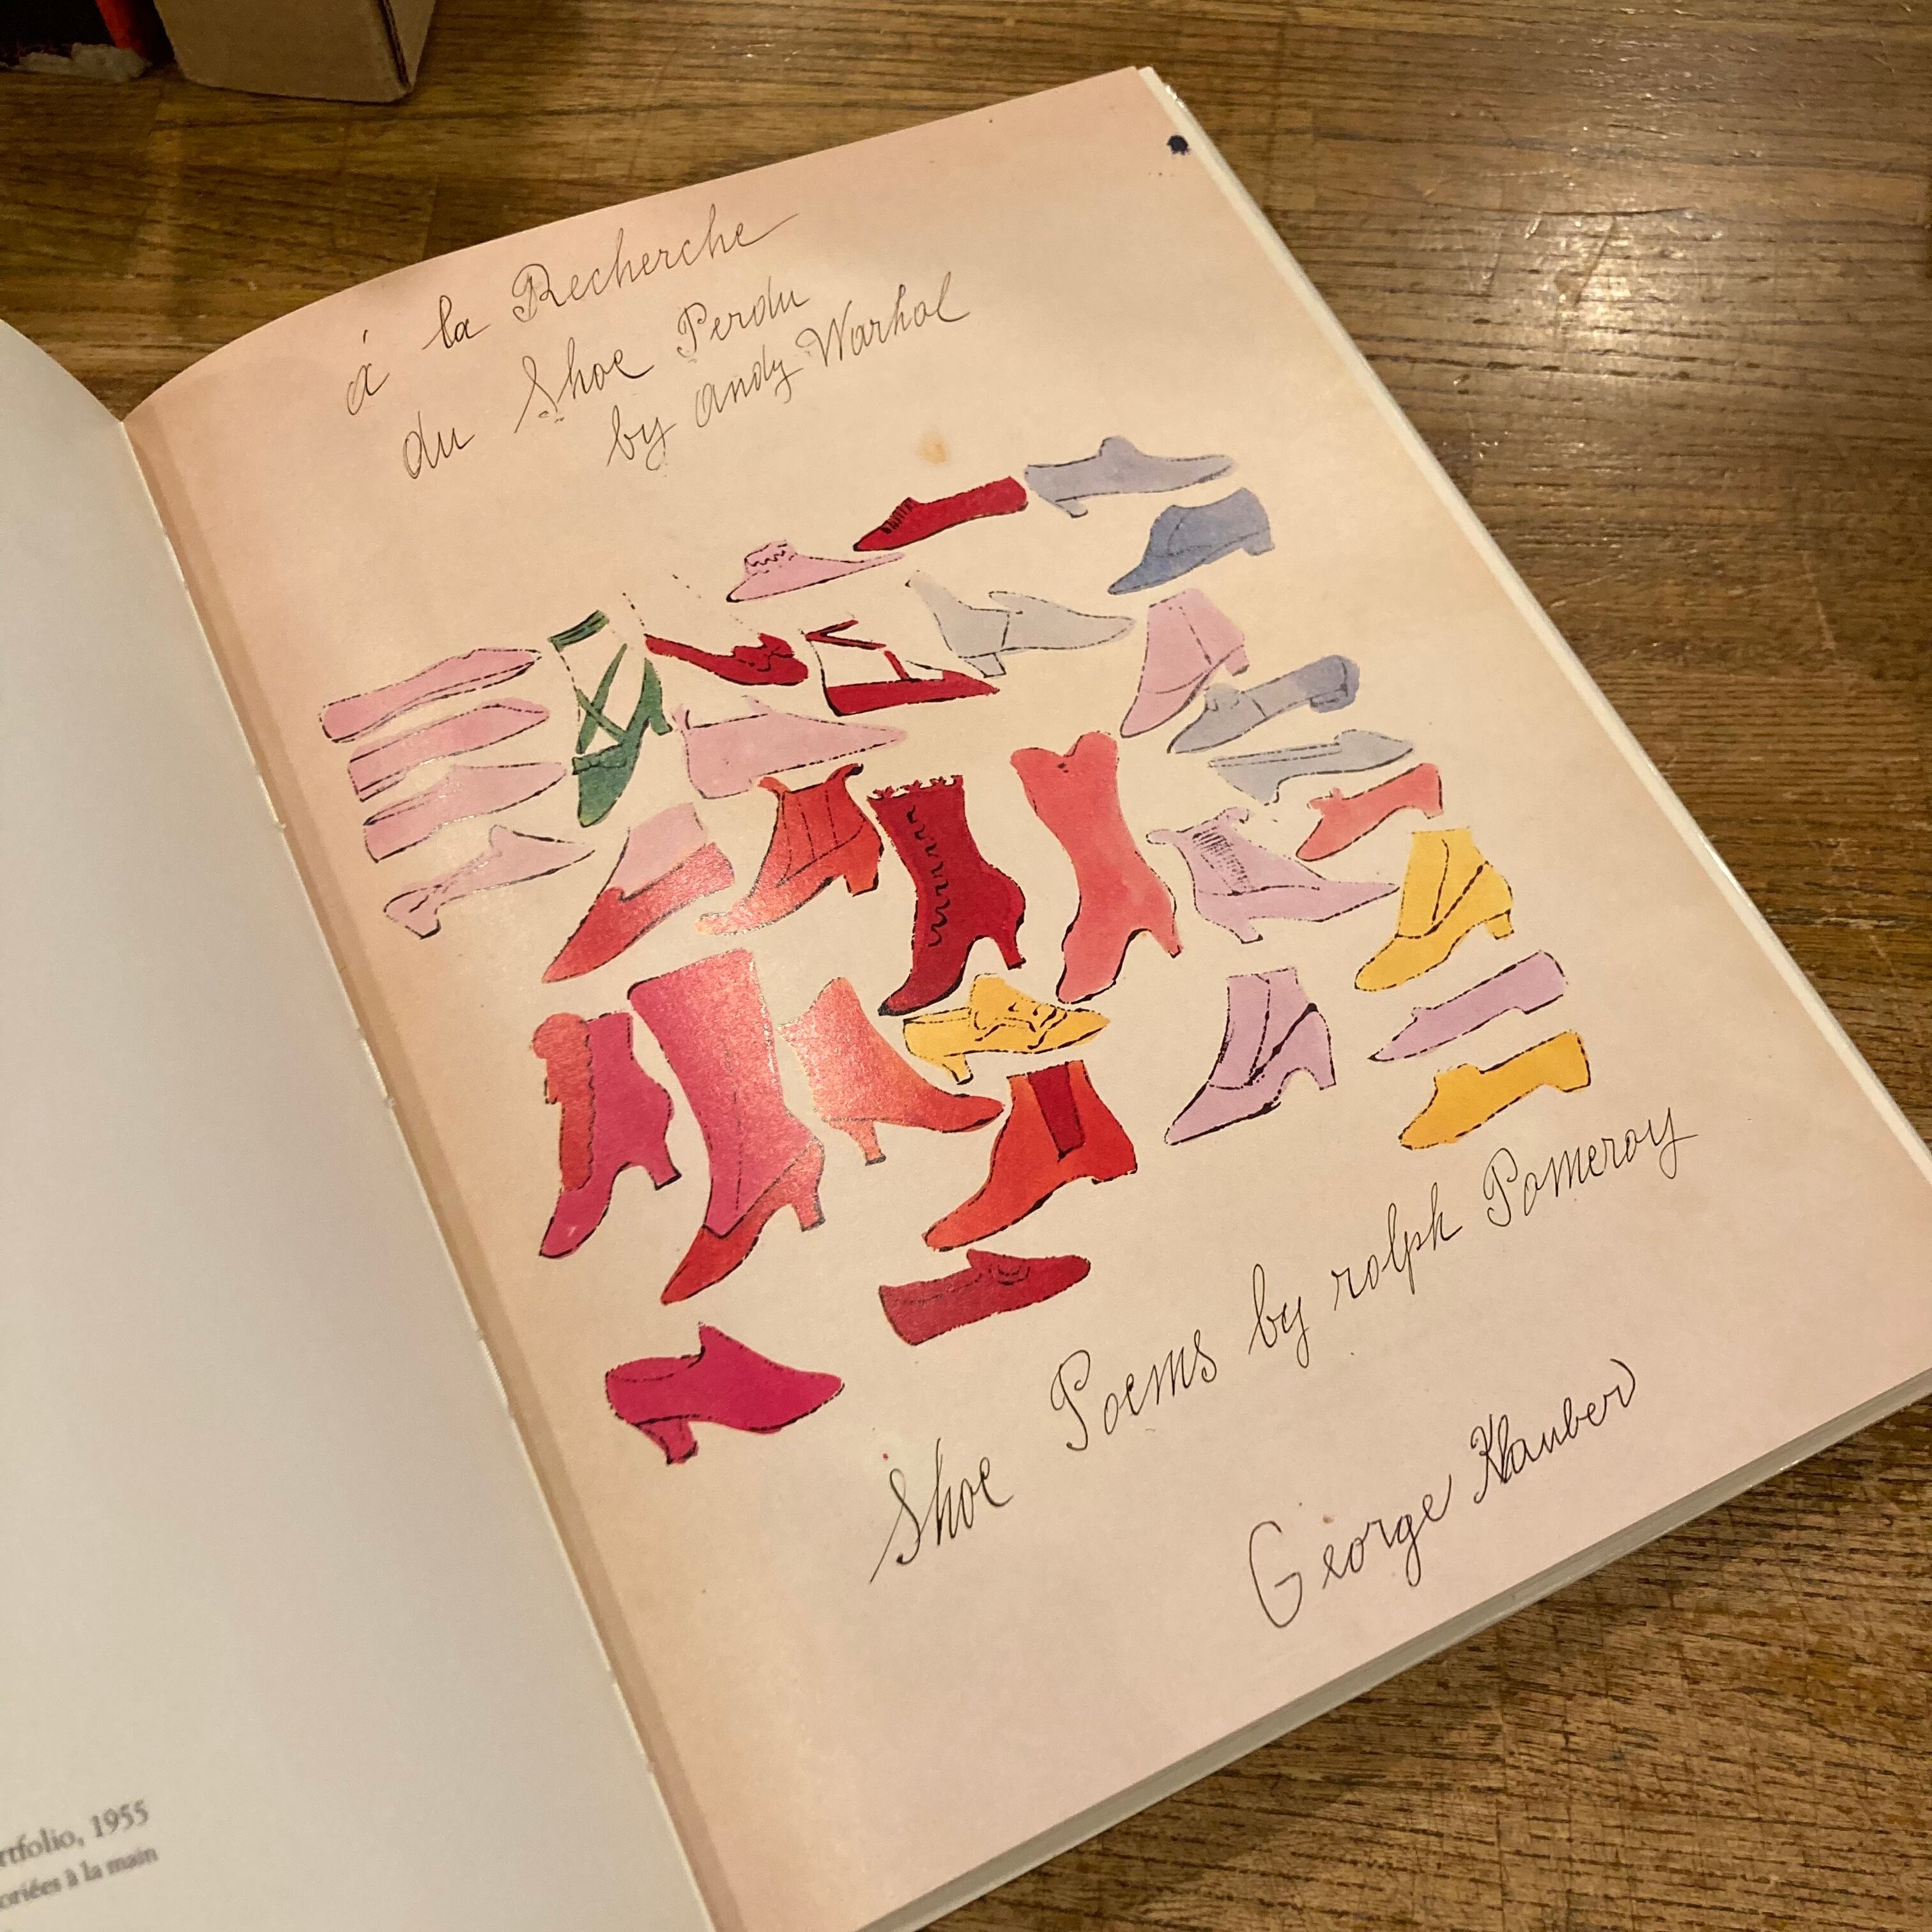 á la Recherche
du Shoe Perdu
by andy Warhol
Shoe Poems by rolph Pomeroy
George Klauber
rtfolio, 1955
oriées à la main